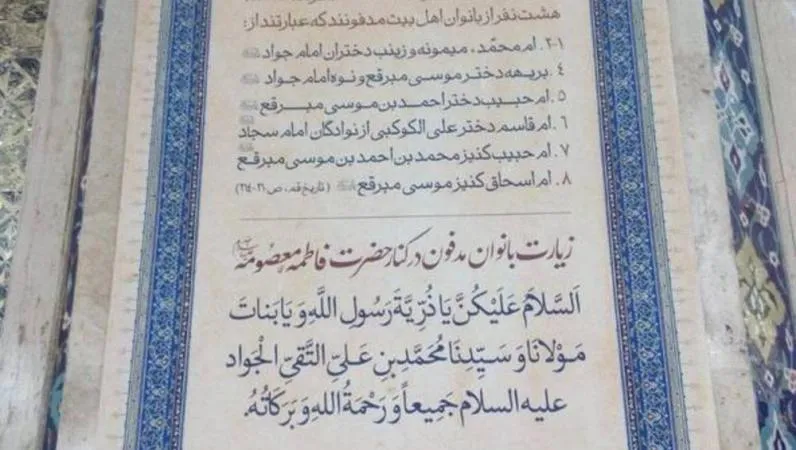 هشت نفر از بانوان اهل بیت مدفونند که عبارتند از:
۱-۲. ام محمّد، میمونه و زینب دختران امام جواد
۴. بریهه دختر موسی مبرقع و نوه امام جواد
۵. ام حبیب دختر احمد بن موسی مبرقع
۶. ام قاسم دختر علی الکوکبی از نوادگان امام سجاد
۷. ام حبیب کنیز محمد بن احمد بن موسی مبرقع
۸. ام اسحاق کنیز موسی مبرقع (تاریخ قم، ص ۲۱۰-۲۱۴)
زیارت بانوان مدفون در کنار حضرت فاطمه معصومه
اَلسَّلامُ عَلَیْکُنَّ یا ذُرِّیَّةَ رَسُولِ اللَّهِ وَ یا بَناتَ
مَوْلانا وَ سَیِّدِنَا مُحَمَّدِ بنِ عَلِیِّ التَّقِیِّ الْجَواد
علیه السلام جَمِیعاً وَ رَحْمَةُ اللهِ وَ بَرَکاتُهُ.